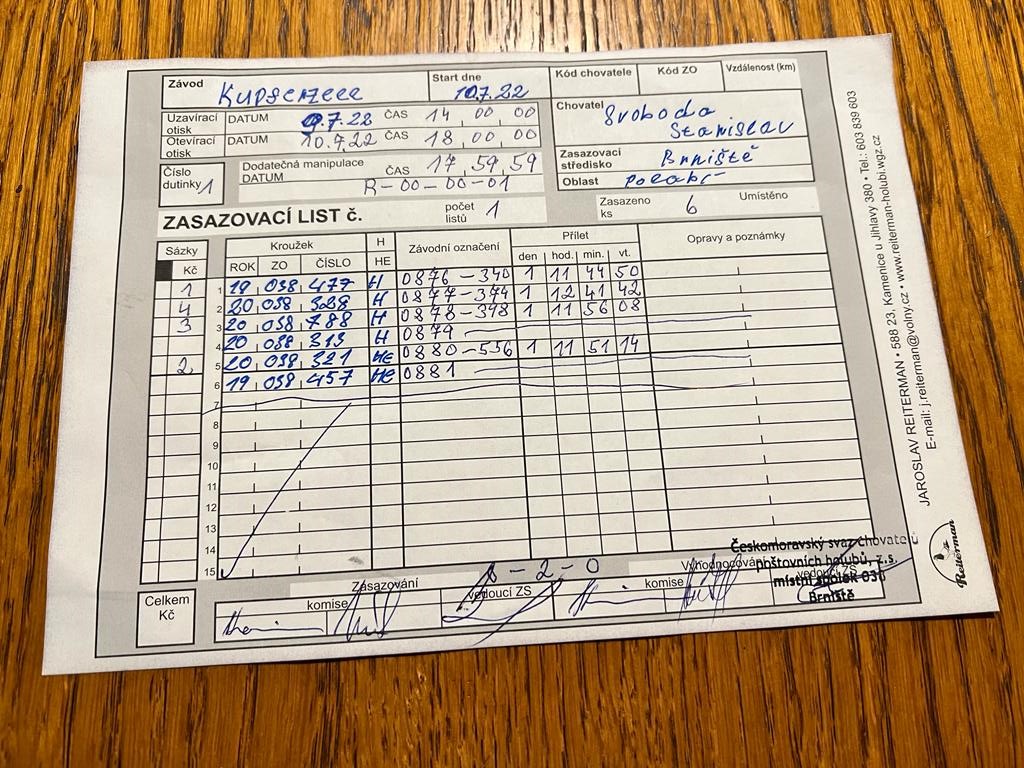 Závod Kupferzell Start dne 10.7.22 Kód chovatele Kód ZO Vzdálenost (km)
Uzavírací otisk DATUM 9.7.22 ČAS 14 00 00
Otevírací otisk DATUM 10.7.22 ČAS 18 00 00
Chovatel Svoboda Stanislav
Číslo dutinky 1
Dodatečná manipulace
DATUM ČAS 17 59 59
R-00-00-01
Zasazovací středisko Brniště
Oblast Polabí
ZASAZOVACÍ LIST č. počet listů 1
Zasazeno ks 6 Umístěno
Sázky Kroužek H Závodní označení Přílet Opravy a poznámky
Kč ROK ZO ČÍSLO HE den hod. min. vt.
1 1 19 038 477 H 0876-340 1 11 44 50
4 2 20 038 328 H 0877-374 1 12 41 42
3 3 20 038 788 H 0878-348 1 11 56 08
4 20 038 313 H 0879
2 5 20 038 321 HE 0880-536 1 11 51 14
6 19 038 457 HE 0881
7
8
9
10
11
12
13
14
15
Celkem Kč
Zasazování Vyhodnocování
komise vedoucí ZS komise vedoucí ZS
-2-0
Českomoravský svaz chovatelů
poštovních holubů, z.s.
místní spolek 038
Brniště
JAROSLAV REITERMAN • 588 23, Kamenice u Jihlavy 380 • Tel.: 603 839 603
E-mail: j.reiterman@volny.cz • www.reiterman-holubi.wgz.cz
Reiterman